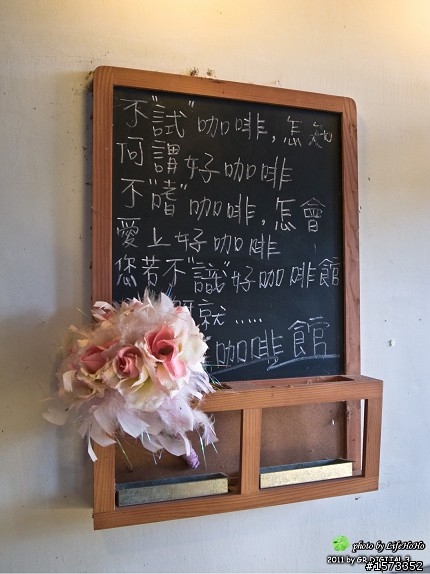 不"試"咖啡,怎知
何謂好咖啡
不"嗜"咖啡,怎會
愛上好咖啡
您若不"識"好咖啡館
就.....
咖啡館
photo by LifeHoHo
2011 by GR DIGITAL 3
#1573352